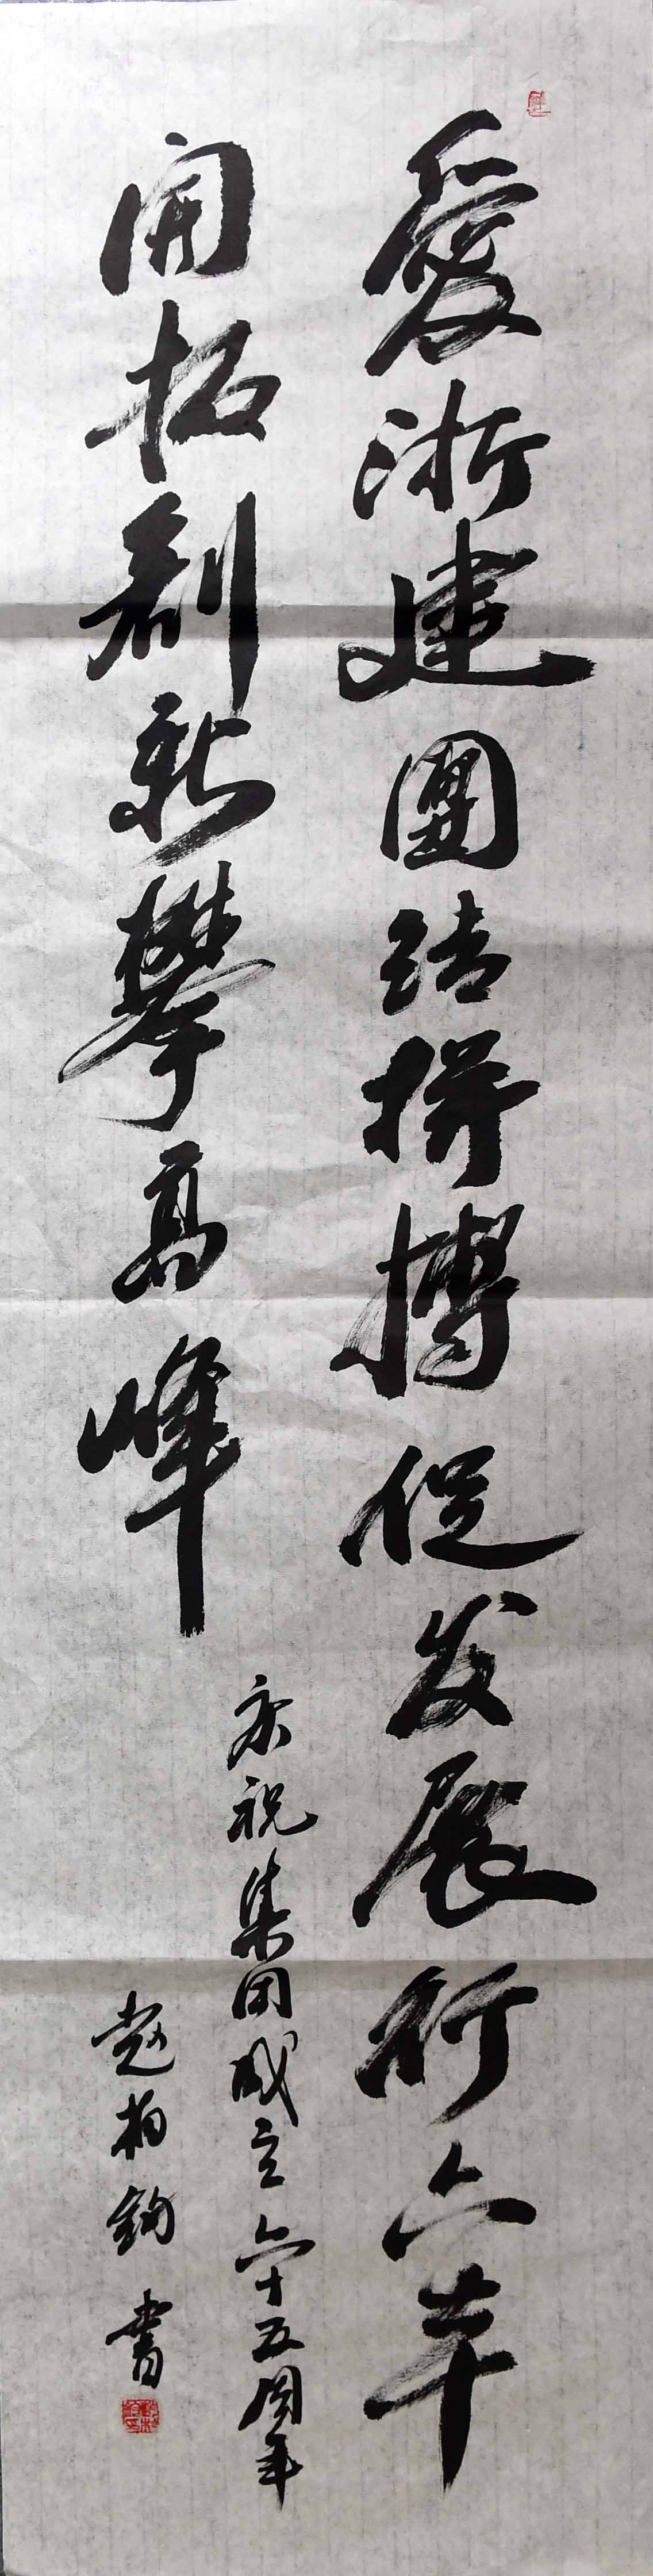 愛浙建團结拼搏促发展祈六年
開拓創新攀高峰
庆祝集团成立六十五周年
赵柏钧書